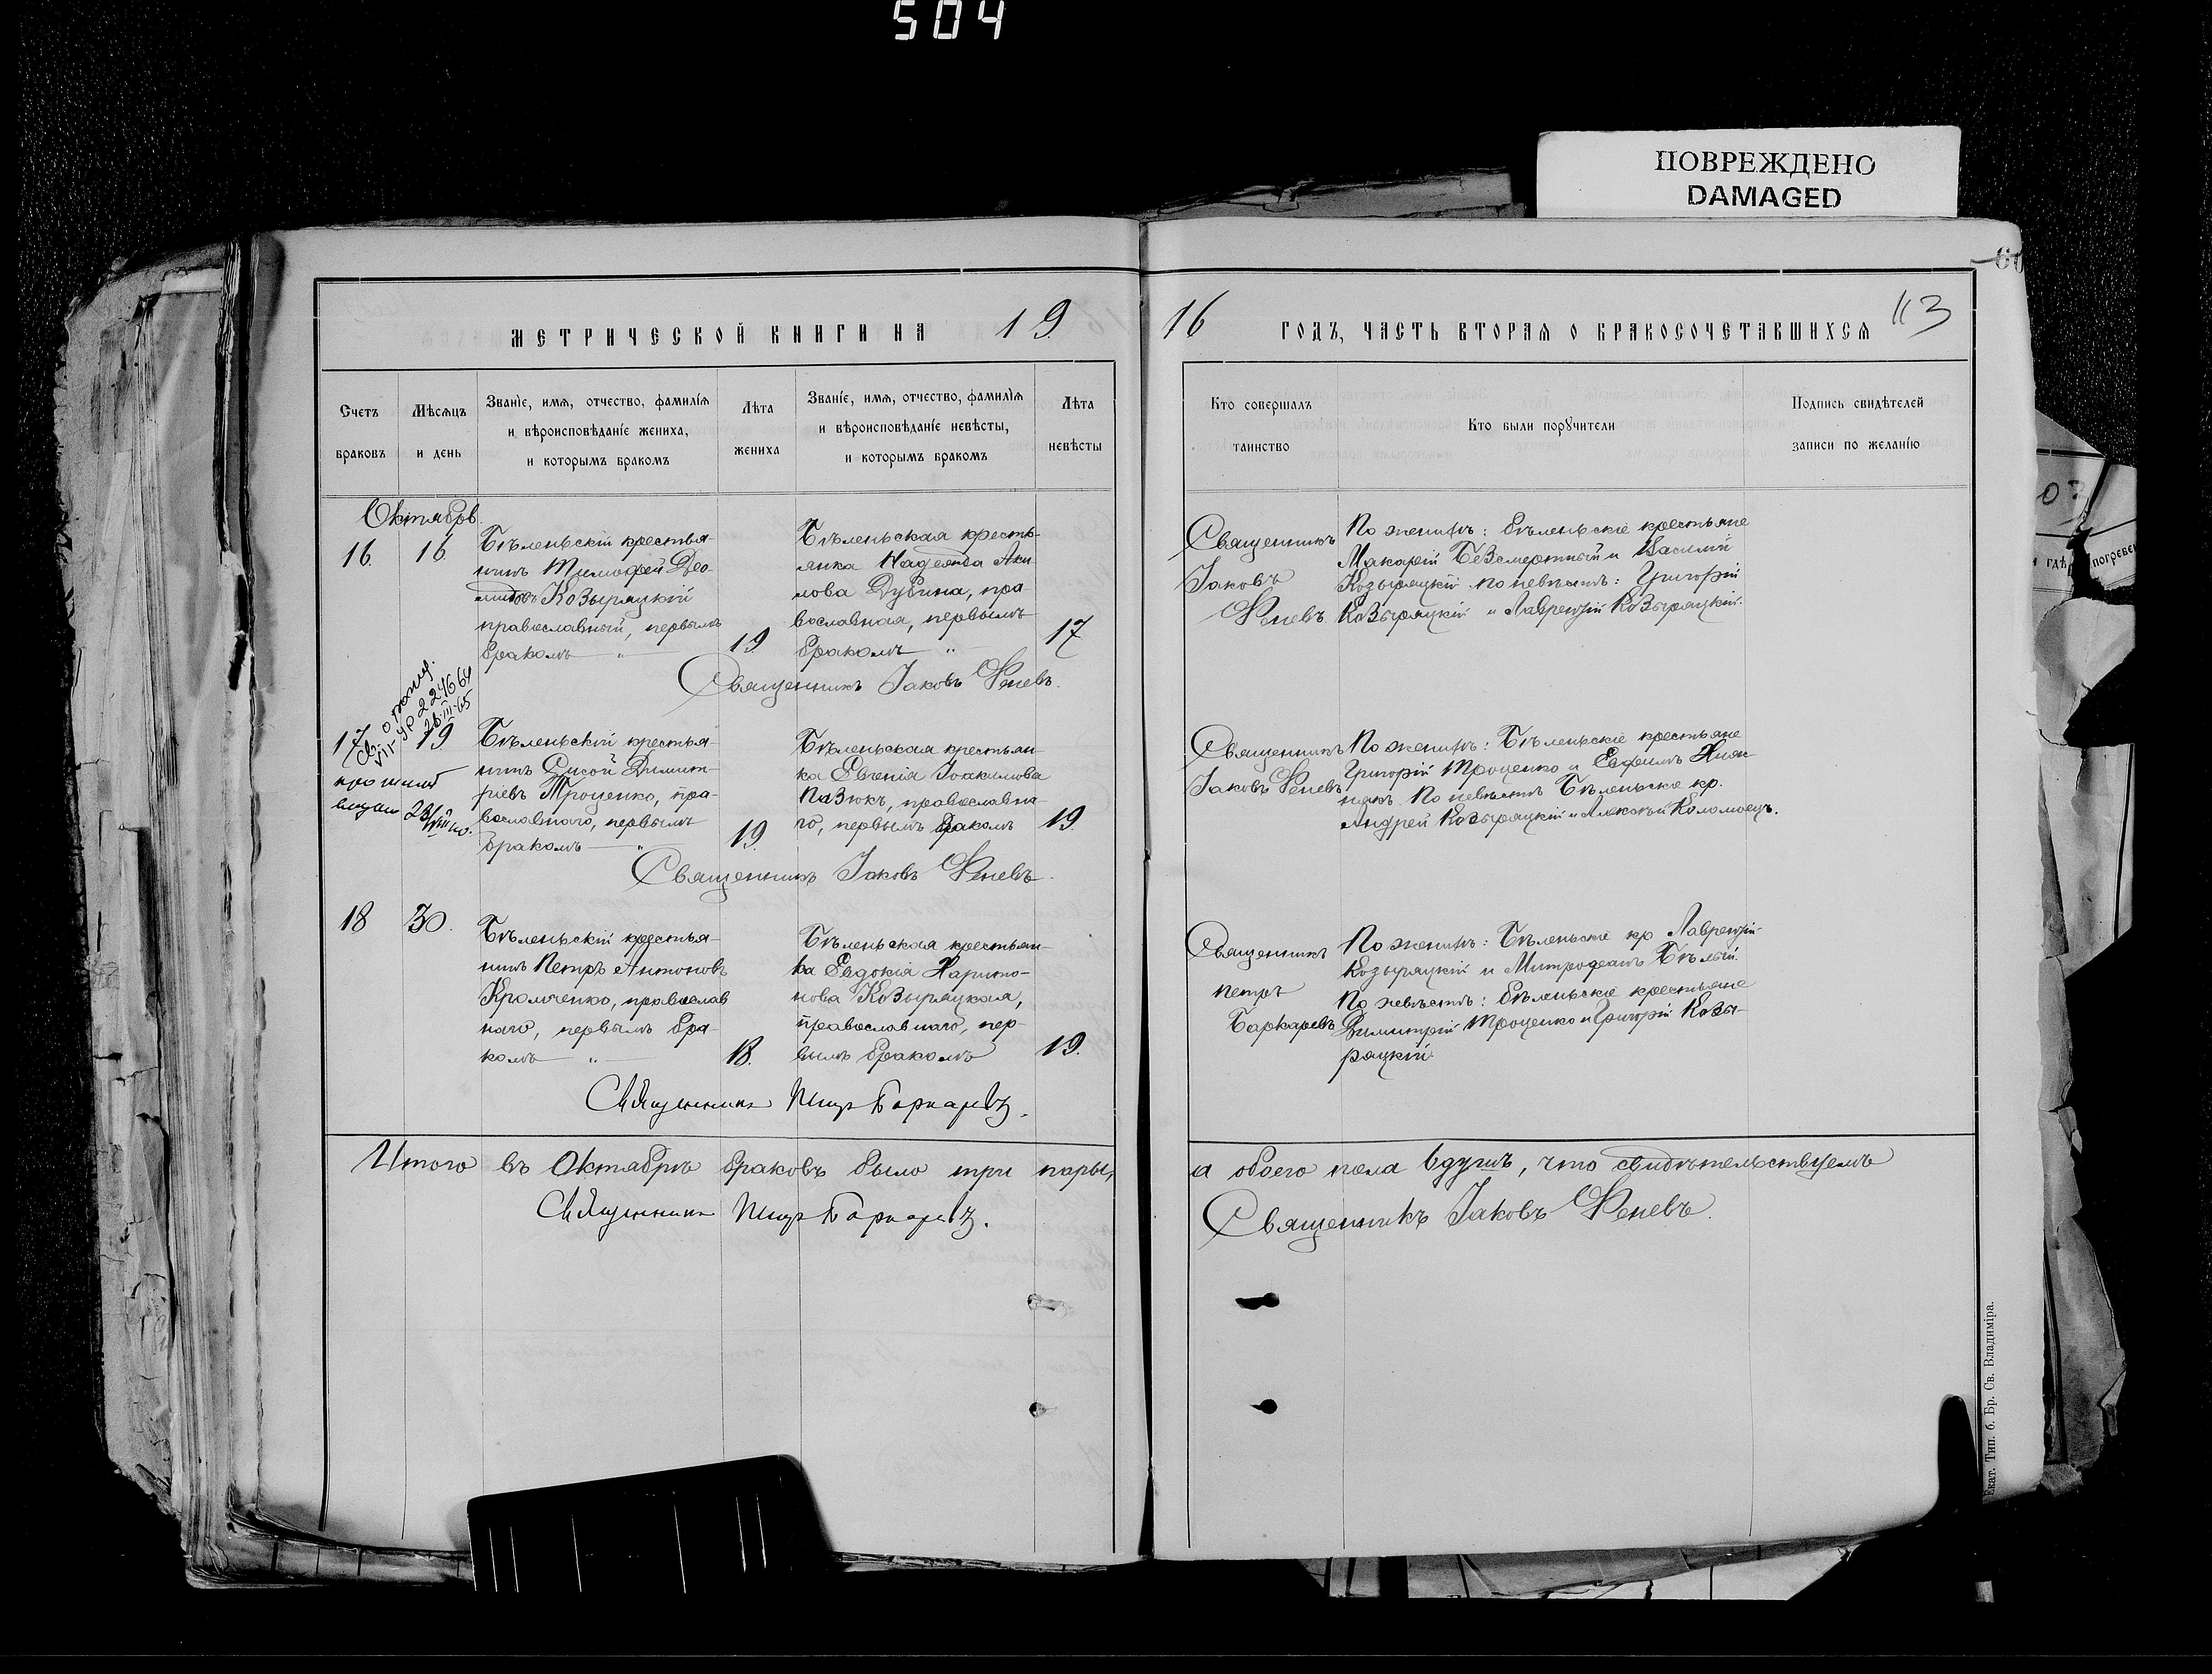 504
ПОВРЕЖДЕНО
DAMAGED
60
МЕТРИЧЕСКОЙ КНИГИ НА 19
16 ГОДЪ, ЧАСТЬ ВТОРАЯ О БРАКОСОЧЕТАВШИХСЯ 113
Счетъ браковъ
Мѣсяцъ и день
Званіе, имя, отчество, фамилія
и вѣроисповѣданіе жениха,
и которымъ бракомъ
Лѣта жениха
Званіе, имя, отчество, фамилія
и вѣроисповѣданіе невѣсты,
и которымъ бракомъ
Лѣта невѣсты
Кто совершалъ
таинство
Кто были поручители
Подпись свидѣтелей
записи по желанію
Октябрь.
16. 16.
Бѣленьскій крестья-
нинъ Тимофей Део-
мидовъ Козырацкій
православный, первымъ
бракомъ — „ —
19
Бѣленьская кресть-
янка Надежда Аки-
мова Дубина, пра-
вославная, первымъ
бракомъ „
17
Священникъ Іаковъ Феневъ.
Священникъ
Іаковъ
Феневъ
По женихѣ: бѣленьскіе крестьяне
Макарій Безсмертный и Василій
Козырацкій по невѣстѣ: Григорій
Козырацкій и Лаврентій Козырацкій.
17 19
VII УР 224664
26-III-65
23/VIII
Бѣленьскій крестья-
нинъ Сисой Димит-
ріевъ Троценко, пра-
вославнаго, первымъ
бракомъ — „
19.
Бѣленьская крестьян-
ка Евгенія Іоакимова
Пазюкъ, православна-
го, первымъ бракомъ
19.
Священникъ Іаковъ Феневъ.
Священникъ
Іаковъ Феневъ
По женихѣ: Бѣленьскіе крестьяне
Григорій Троценко и Евфимъ
По невѣстѣ Бѣленьскіе кр.
Андрей Козырацкій и Алексѣй Коломоецъ.
18 30.
Бѣленьскій крестья-
нинъ Петръ Антоновъ
Кромченко, православ
наго, первымъ бра-
комъ — „ —
18.
Бѣленьская крестьян-
ка Евдокія Харито-
нова Козырацкая,
православнаго, пер-
вымъ бракомъ
19.
Священникъ Петръ Баркаревъ.
Священникъ
Петръ
Баркаревъ
По женихѣ: Бѣленьскіе кр Лаврентій
Козырацкій и Митрофанъ Бѣлый.
По невѣстѣ: бѣленьскіе крестьяне
Димитрій Троценко и Григорій Козы-
рацкій.
Итого въ Октябрѣ браковъ было три пары,
а обоего пола 6 душъ, что свидѣтельствуемъ
Священникъ Петръ Баркаревъ.
Священникъ Іаковъ Феневъ.
Екат. Тип. б. Бр. Св. Владиміра.